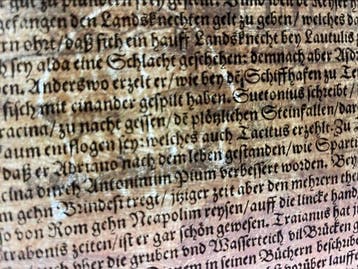 gefangen den Landsknechten gelt zu geben/ welches da
rn ohrt/ daß sich ein hauff Landsknecht bey Lautulis
h sey alda eine Schlacht geschehen: demnach aber Asd
en. Anderswo erzelt er/ wie bey der Schiffhafen zu Te
fisch mit einander gespilt haben. Suetonius schreibe/
racina/ zu nacht gessen/ dē plötzlichen Steinfallen/ dar
aum entflogen sey: welches auch Tacitus erzehlt. Zu
daß er Adriano nach dem leben gestanden/ wie Sparti
cina durch Antoninum Pium verbessert worden. Bey
m gehn Brundesi tregt/ itziger zeit aber den mehrern the
so von Rom gehn Neapolim reysen/ auff die lincke hand
trabonis zeiten/ ist er gar schön gewesen. Traianus hat
auch vber die gruben vnd Wasserteich vil Brücken g
dem in seinen Büchern beschrib